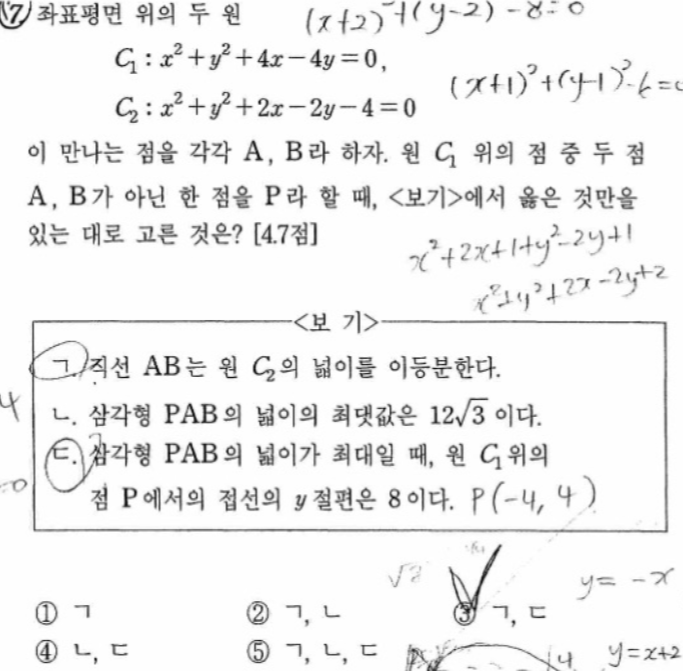 ⑦ 좌표평면 위의 두 원
(x+2)²+(y-2)²-8=0
C₁ : x²+y²+4x-4y=0,
C₂ : x²+y²+2x-2y-4=0
(x+1)²+(y-1)²-6=0
이 만나는 점을 각각 A, B라 하자. 원 C₁ 위의 점 중 두 점
A, B가 아닌 한 점을 P라 할 때, <보기>에서 옳은 것만을
있는 대로 고른 것은? [4.7점]
x²+2x+1+y²-2y+1
x²+y²+2x-2y+2
<보 기>
ㄱ. 직선 AB는 원 C₂의 넓이를 이등분한다.
4
ㄴ. 삼각형 PAB의 넓이의 최댓값은 12√3 이다.
ㄷ. 삼각형 PAB의 넓이가 최대일 때, 원 C₁위의
=0
점 P에서의 접선의 y절편은 8이다. P(-4, 4)
y= -x
① ㄱ ② ㄱ, ㄴ ③ ㄱ, ㄷ
④ ㄴ, ㄷ ⑤ ㄱ, ㄴ, ㄷ
y=x+2